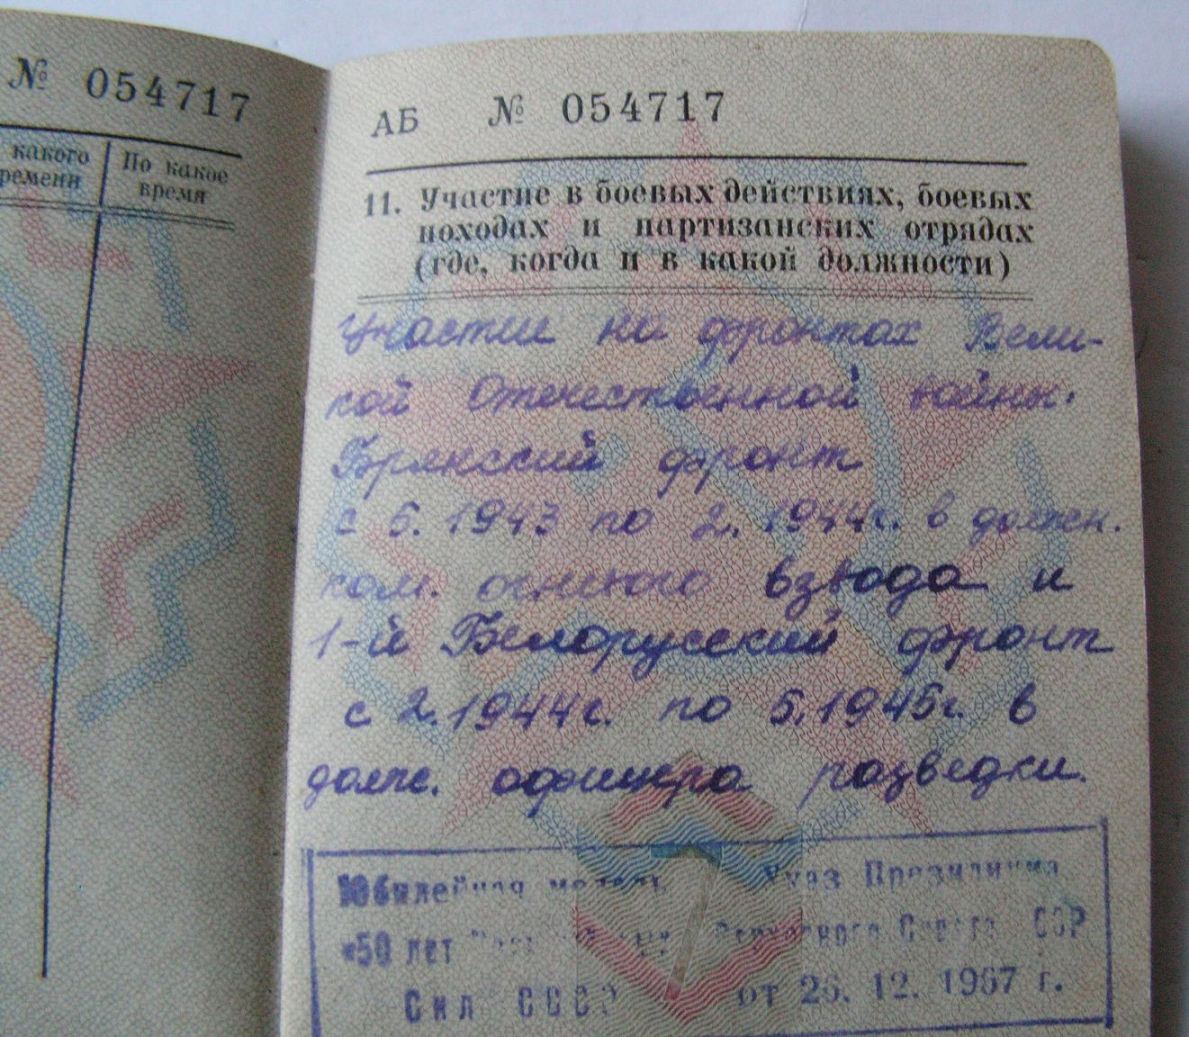 № 054717
какого
ремени
По какое
время
АБ № 054717
11. Участие в боевых действиях, боевых
походах и партизанских отрядах
(где, когда и в какой должности)
Участие на фронтах Вели-
кой Отечественной войны.
Брянский фронт
с 6. 1943 по 2. 1944г. в должн.
ком. огневого взвода и
1-й Белорусский фронт
с 2.1944г. по 5.1945г. в
должн. офицера разведки.
Юбилейная медаль
«50 лет
Сил СССР
Указ Президиума
Верховного Совета СССР
от 26. 12. 1967 г.